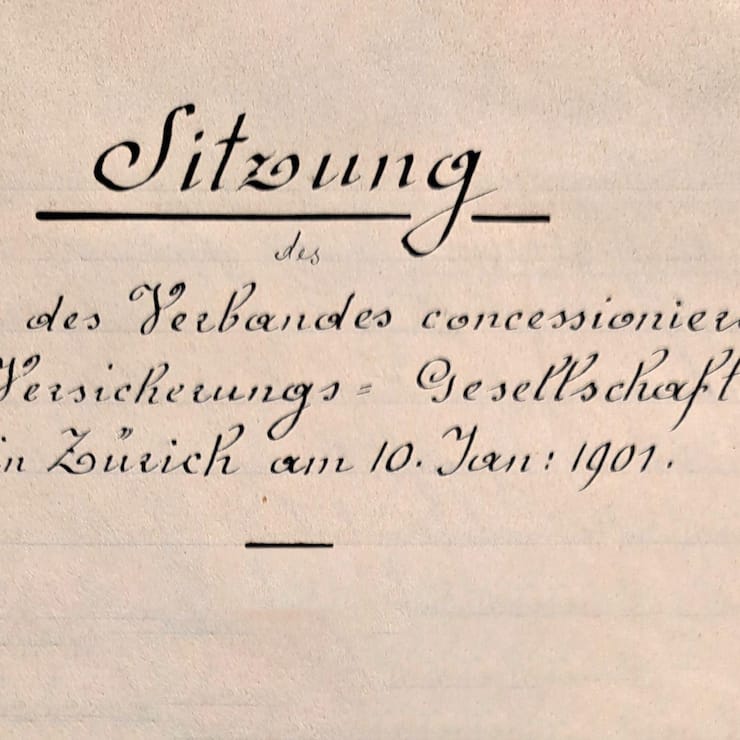 Sitzung
des
des Verbandes concessionier
Versicherungs = Gesellschaft
in Zürich am 10. Jan: 1901.